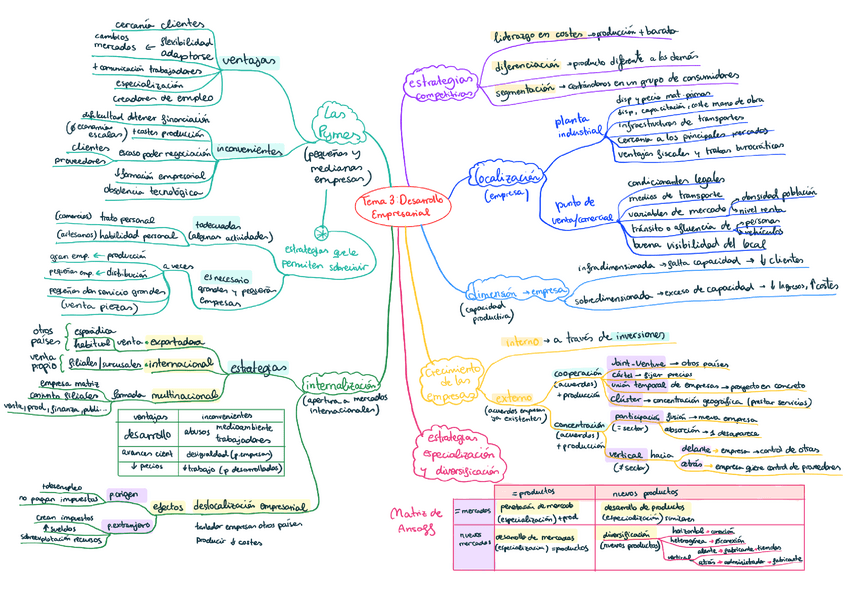 Tema 3: Desarrollo
Empresarial
Las
Pymes
(pequeñas y
medianas
empresas)
ventajas
cercanía clientes
cambios
mercados ← flexibilidad
adaptarse
+ comunicación trabajadores
especialización
creadores de empleo
inconvenientes
dificultad obtener financiación
(p economía
escalas) + costes producción
clientes
proveedores
escaso poder negociación
↓ formación empresarial
obsolencia tecnológica
estrategias que le
permiten sobrevivir
adecuadas
(algunas actividades)
(comercios) trato personal
(artesanos) habilidad personal
es necesario
grandes y pequeñas
empresas
a veces
gran emp. ← producción
pequeña emp. ← distribución
pequeñas dan servicio grandes
(venta piezas)
internalización
(apertura a mercados
internacionales)
estrategias
otros
países
esporádica
habitual
venta • exportadora
venta
propio
filiales/sucursales • internacional
empresa matriz
conjunto filiales
formada multinacional
venta, prod., finanza, publi...
ventajas inconvenientes
desarrollo abusos medioambiente
trabajadores
avances cient desigualdad (p. empresas)
↓ precios ↓ trabajo (p desarrollados)
efectos deslocalización empresarial
trasladar empresan otros países
producir ↓ costes
p. origen
+ desempleo
no pagan impuestos
p. extranjero
crean impuestos
↑ sueldos
sobreexplotación recursos
estrategias
competitivas
liderazgo en costes → producción + barata
diferenciación → producto diferente a los demás
segmentación → centrándonos en un grupo de consumidores
localización
(empresa)
planta
industrial
disp y precio mat. primas
disp, capacitación, coste mano de obra
infraestructuras de transportes
cercanía a los principales mercados
ventajas fiscales y trabas burocráticas
punto de
venta/comercial
condicionantes legales
medios de transporte
variables de mercado
densidad población
nivel renta
tránsito o afluencia de
personas
vehículos
buena visibilidad del local
dimensión → empresa
(capacidad
productiva)
infradimensionada → falta capacidad → ↓ clientes
sobredimensionada → exceso de capacidad → ↓ ingresos, ↑ costes
Crecimiento
de las
empresas
interno → a través de inversiones
externo
(acuerdos empresas
ya existentes)
cooperación
(acuerdos)
+ producción
Joint-Venture → otros países
Cártel → fijar precios
Unión temporal de empresas → proyecto en concreto
Clúster → concentración geográfica (prestar servicios)
concentración
(acuerdos)
+ producción
participación
(= sector)
fusión → nueva empresa
absorción → 1 desaparece
vertical hacia
(≠ sector)
delante → empresa → control de otras
atrás → empresa quiere control de proveedores
estrategias
especialización
y diversificación
Matriz de
Ansoff
= productos nuevos productos
= mercados
penetración de mercado
(especialización) + prod
desarrollo de productos
(especialización) similares
nuevos
mercados
desarollo de mercados
(especialización) = productos
diversificación
(nuevos productos)
horizontal → conexión
heterogénea →
vertical
delante → fabricante - tiendas
atrás → - fabricante